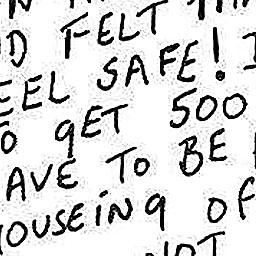 FELT
EEL SAFE! I
O gET 500
AVE TO BE
OUSEiNg OF
NOT